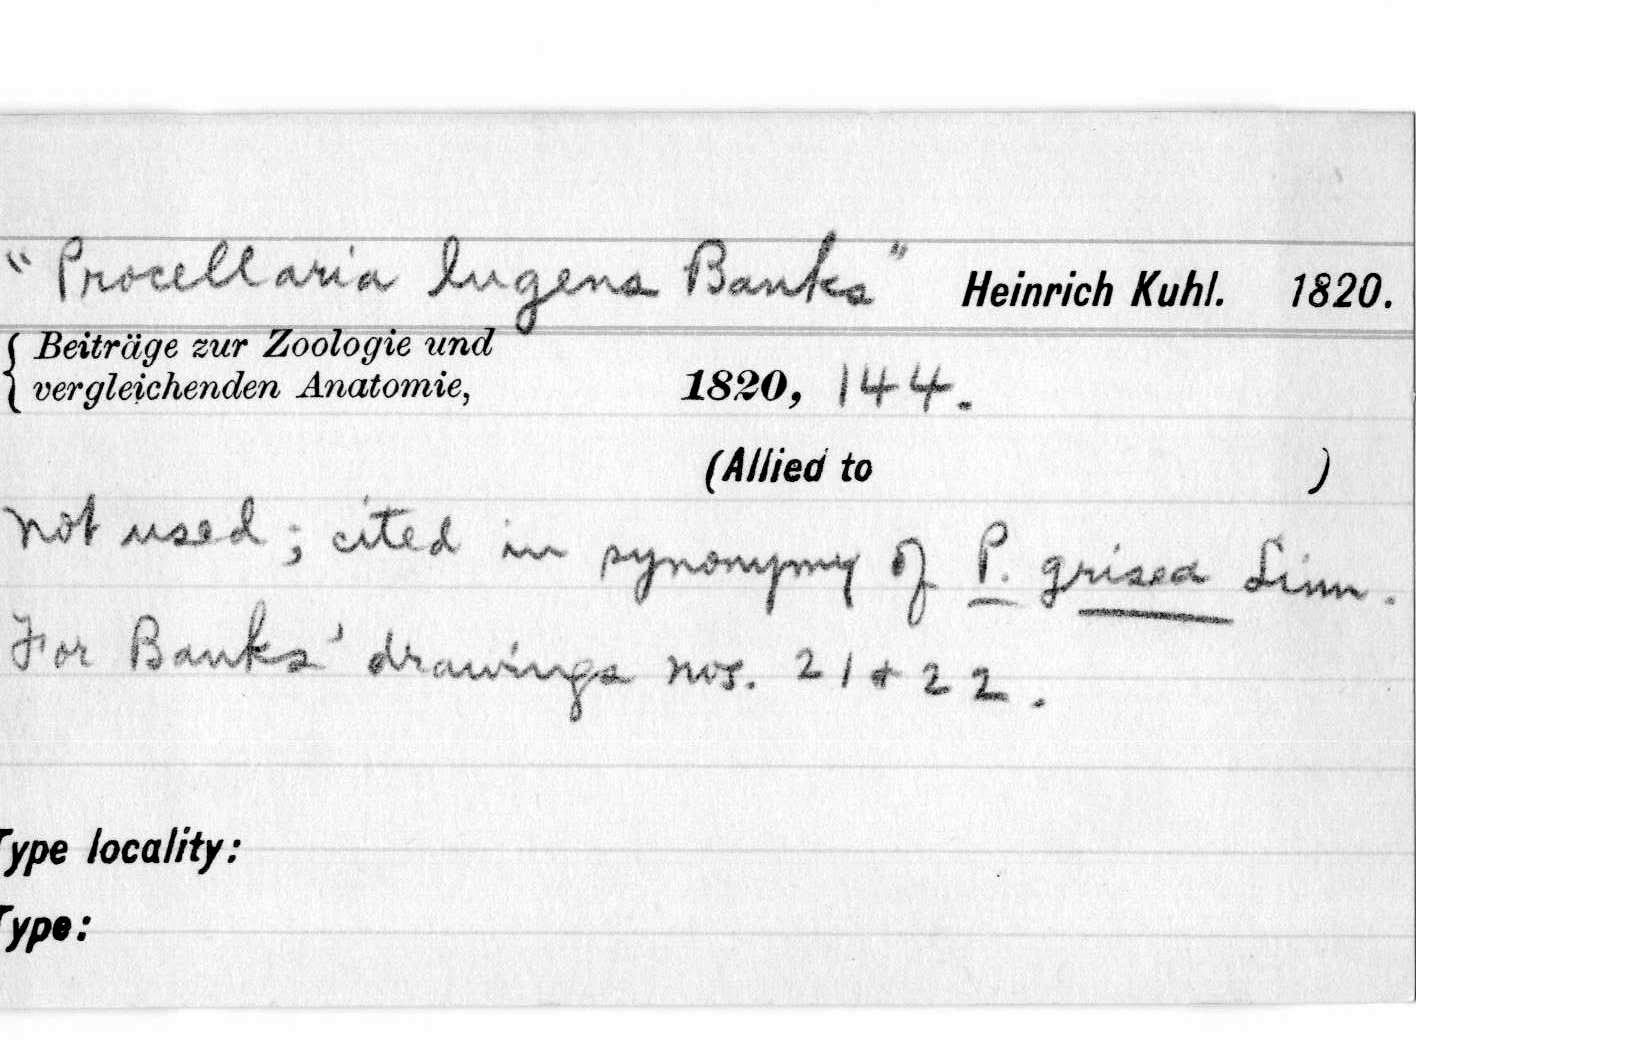 "Procellaria lugens Banks" Heinrich Kuhl. 1820.
{ Beiträge zur Zoologie und
vergleichenden Anatomie, 1820, 144.
(Allied to )
not used; cited in synonymy of P. grisea Linn.
For Banks' drawings nos. 21 + 22.
Type locality:
Type: